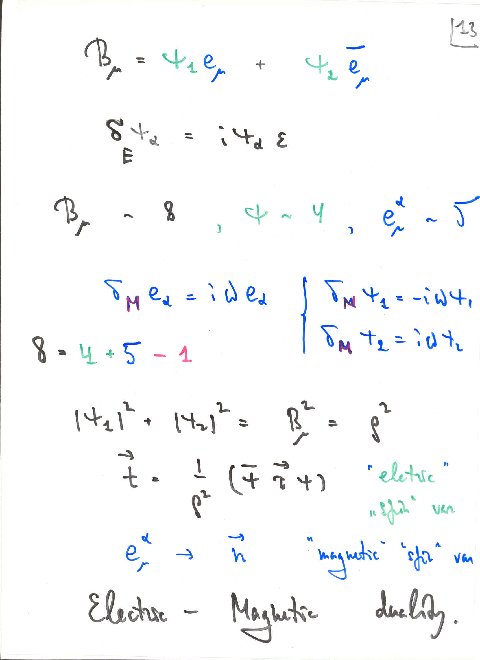 13
B_μ = ψ_1 e_μ + ψ_2 ē_μ
δ_E ψ_α = i ψ_α ε
B_μ ~ 8 , ψ ~ 4 , e_μ^α ~ 5
δ_M e_α = i ω e_α
δ_M ψ_1 = -i ω ψ_1
δ_M ψ_2 = i ω ψ_2
8 = 4 + 5 - 1
|ψ_1|² + |ψ_2|² = B_μ² = ρ²
t⃗ = 1/ρ² (ψ̄ τ⃗ ψ) "eletric"
var
e_μ^α → n⃗ "magnetic" var
Electric - Magnetic duality.